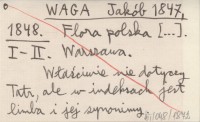 WAGA Jakób 1847,
1848. Flora polska [...].
I-II. Warszawa.
Właściwie nie dotyczy
Tatr, ale w indeksach jest
limba i jej synonimy.